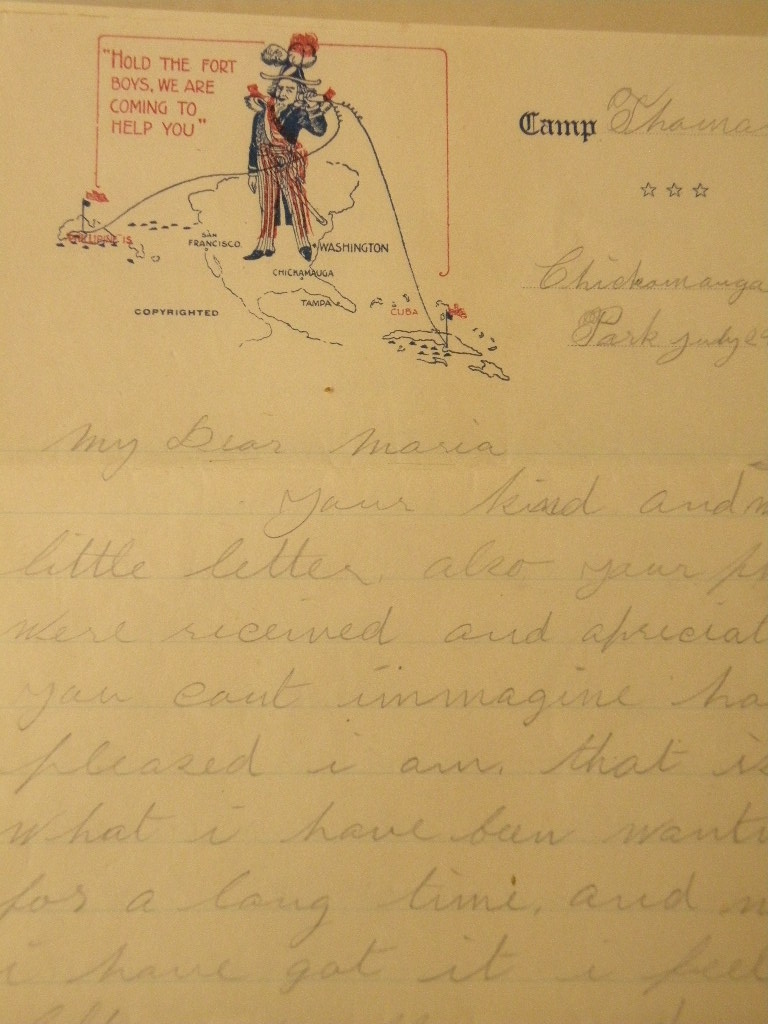 "HOLD THE FORT
BOYS, WE ARE
COMING TO
HELP YOU"
Camp Thomas
SAN
FRANCISCO
WASHINGTON
CHICKAMAUGA
TAMPA
CUBA
COPYRIGHTED
Chickamauga
Park July
My Dear Maria
Your kind and
little letter, also your
were received and apreciat
you cant immagine ho
pleased i am, that is
what i have been wanti
for a long time, and
i have got it i feel